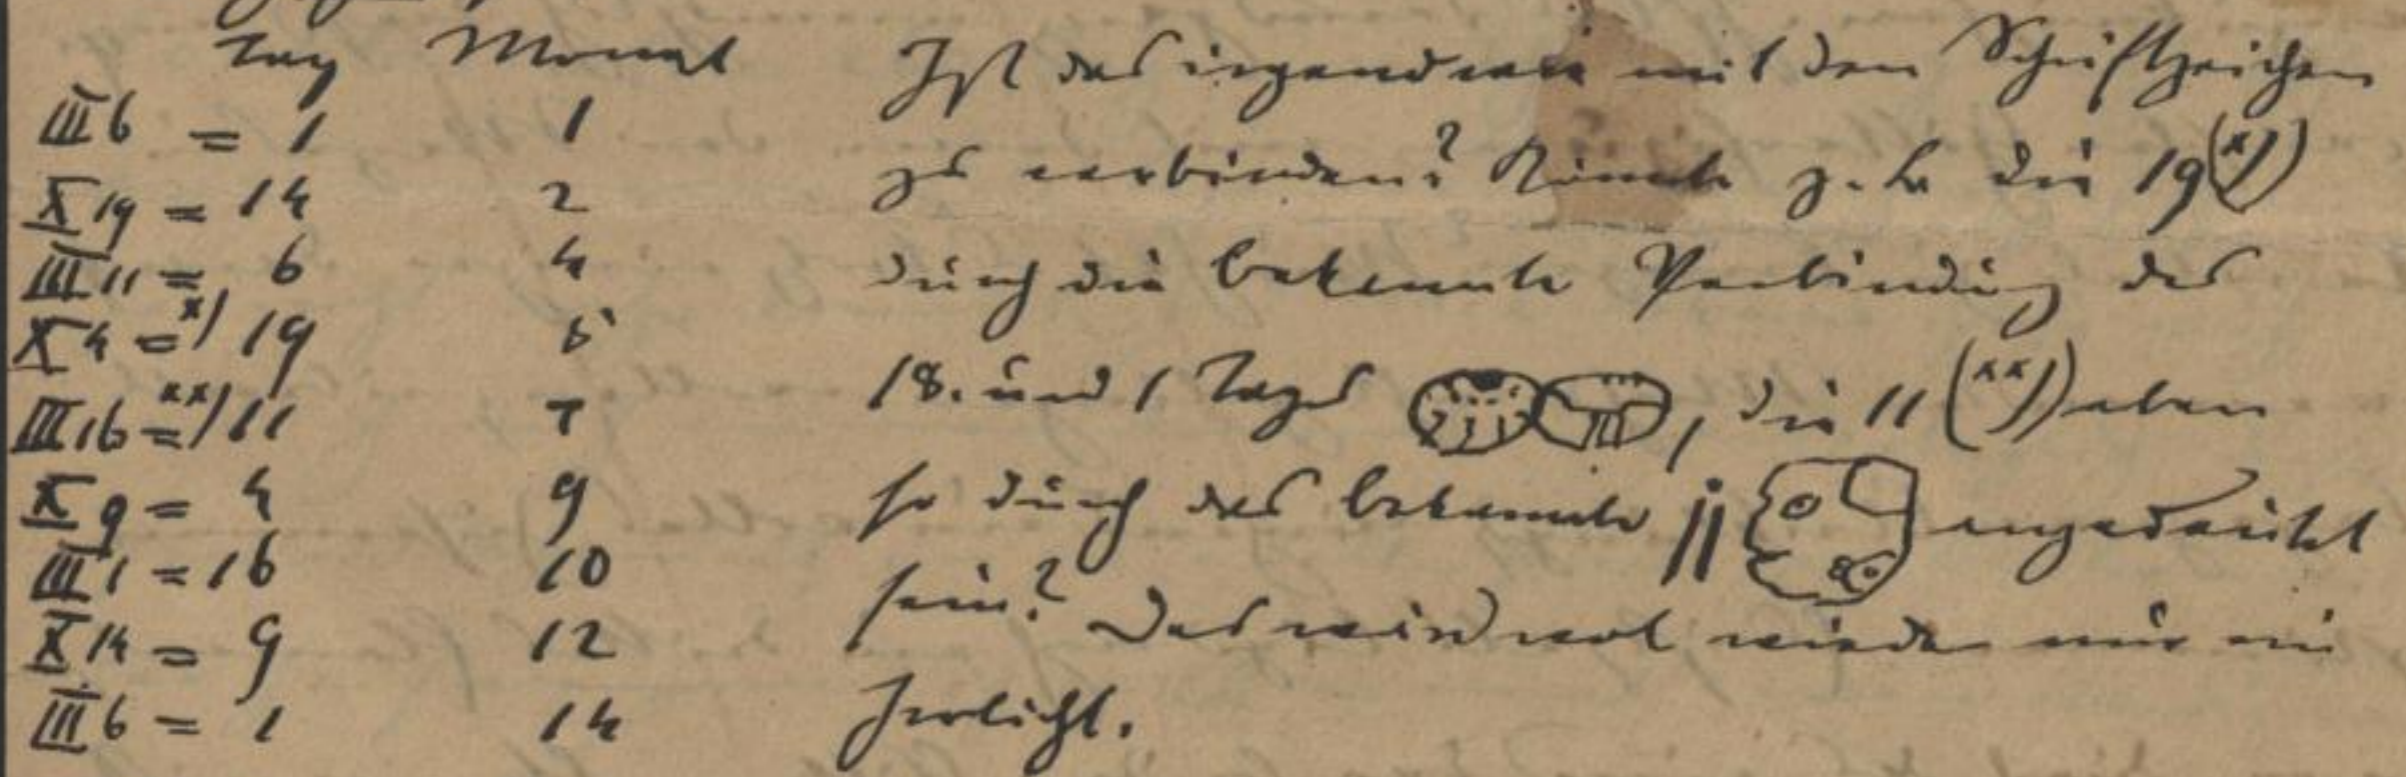 Tag Monat
III 6 = 1 1
X 19 = 14 2
III 11 = 6 4
X 4 =x) 19 5
III 16 =xx) 11 7
X 9 = 4 9
III 1 = 16 10
X 14 = 9 12
III 6 = 1 14
Ist das irgendwie mit den Schriftzeichen
zu verbinden? Könnte z. B. die 19 (x))
durch die bekannte Verbindung des
18. und 1 Tages , die 11 (xx)) eben
so durch das bekannte 11 angedeutet
sein? Das wird wol wieder nur ein
Irrlicht.